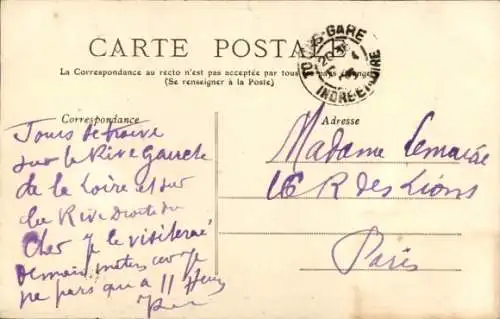 CARTE POSTALE
La Correspondance au recto n'est pas acceptée par tous pays étrangers
(Se renseigner à la Poste)
TOURS-GARE
INDRE-ET-LOIRE
Correspondance
Adresse
Tours se trouve
sur la Rive Gauche
de la Loire et sur
la Rive Droite du
Cher je le visiterai
Demain matin car je
ne pars qu'à 11 heures
Madame Lemaire
16 R des Lions
Paris